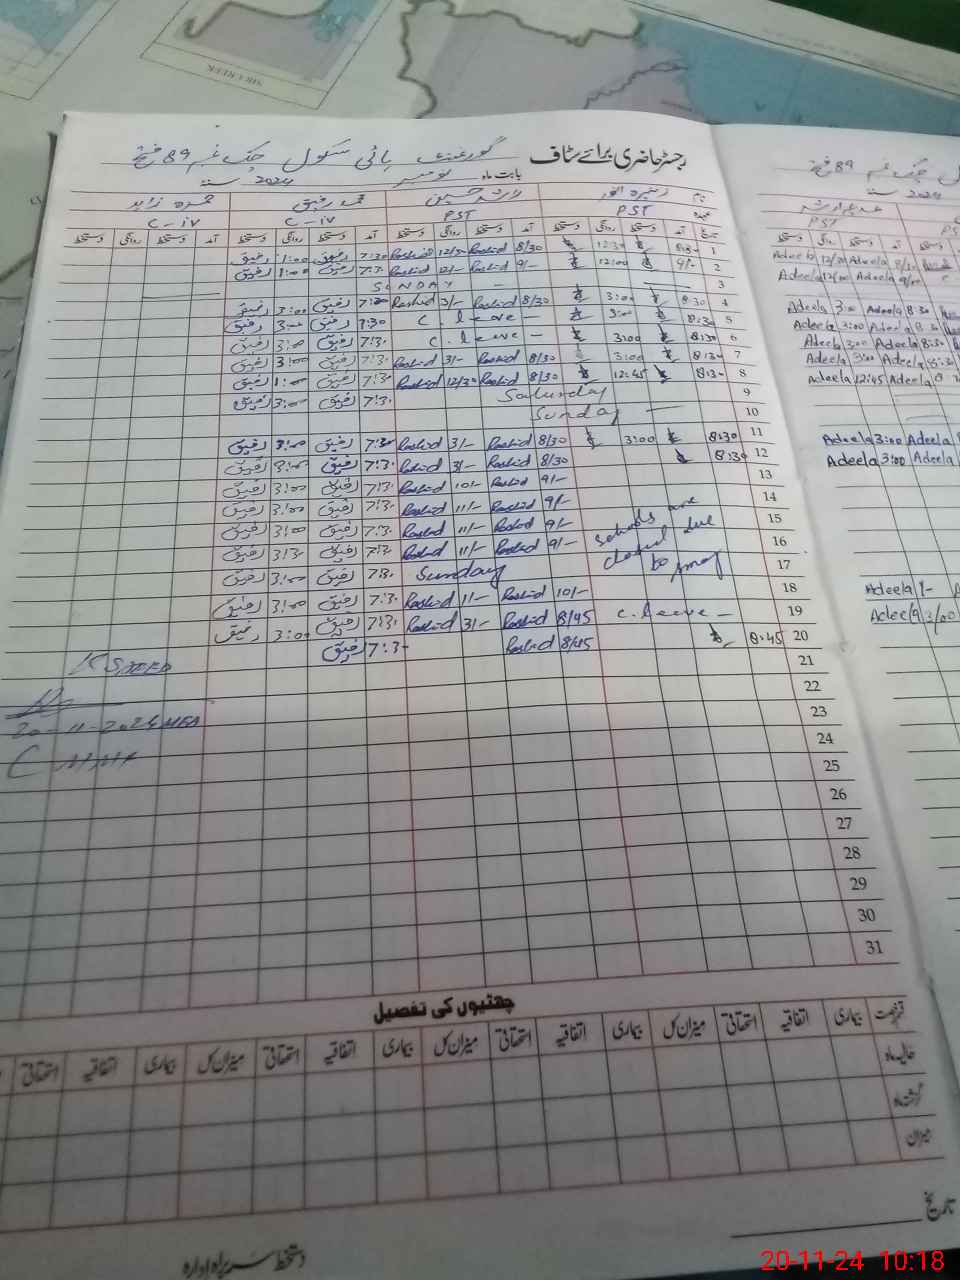 SIR CREEK
رجسٹر حاضری برائے سٹاف گورنمنٹ ہائی سکول چک نمبر 89 فتح
بابت ماہ نومبر 2024 سنہ
نام راشد حسین محمد رفیق حمزہ زاہد
عہدہ PST PST C-iv C-iv
تاریخ آمد دستخط روانگی دستخط آمد دستخط روانگی دستخط آمد دستخط روانگی دستخط آمد دستخط روانگی دستخط
1 8:30 12:30 8/30 Rashid 12/30 Rashid 7:30 رفیق 1:00 رفیق
2 9/- 12:00 9/- Rashid 12/- Rashid 7:3. رفیق 1:00 رفیق
3 SUNDAY
4 8:30 3:00 8/30 Rashid 3/- Rashid رفیق 3:00 رفیق
5 8:30 3:00 C. leave - 7:30 رفیق 3:00 رفیق
6 8:30 3:00 C. leave - 7:3. رفیق 3:00 رفیق
7 8:30 3:00 8/30 Rashid 3/- Rashid 7:3. رفیق 3:00 رفیق
8 8:30 12:45 8/30 Rashid 12/30 Rashid 7:3. رفیق 1:00 رفیق
9 Saturday 7:3. رفیق 3:00 رفیق
10 Sunday
11 8:30 3:00 8/30 Rashid 3/- Rashid 7:30 رفیق 3:00 رفیق
12 8:30 8/30 Rashid 3/- Rashid 7:3. رفیق 3:00 رفیق
13 9/- Rashid 10/- Rashid 7:3. رفیق 3:00 رفیق
14 9/- Rashid 11/- Rashid 7:3. رفیق 3:00 رفیق
15 schools are 9/- Rashid 11/- Rashid 7:3. رفیق 3:00 رفیق
16 closed due 9/- Rashid 11/- Rashid 7:3. رفیق 3:3. رفیق
17 to smog Sunday 7:3. رفیق 3:00 رفیق
18 10/- Rashid 11/- Rashid 7:3. رفیق 3:00 رفیق
19 C. leave - 8/45 Rashid 3/- Rashid 7:3. رفیق 3:00 رفیق
20 8:45 8/45 Rashid 7:3- رفیق
21
22
20-11-2024 MEA
23
24
25
26
27
28
29
30
31
چھٹیوں کی تفصیل
قسم رخصت بیماری اتفاقیہ استحقاقی میزان کل بیماری اتفاقیہ استحقاقی میزان کل بیماری اتفاقیہ استحقاقی میزان کل بیماری اتفاقیہ استحقاقی
حالیہ ماہ
گزشتہ ماہ
میزان
تاریخ
دستخط سربراہ ادارہ
89 فتح
2024 سنہ
PST
دستخط روانگی دستخط آمد
Adeela 12/30 Adeela 8/30
Adeela 12/00 Adeela 9/00
Adeela 3:00 Adeela 8:30
Adeela 3:00 Adeela 8:30
Adeela 3:00 Adeela 8:30
Adeela 3:00 Adeela 8:30
Adeela 12:45 Adeela
Adeela 3:00 Adeela
Adeela 3:00 Adeela
Adeela 1-
Adeela 3/00
20-11-24 10:18